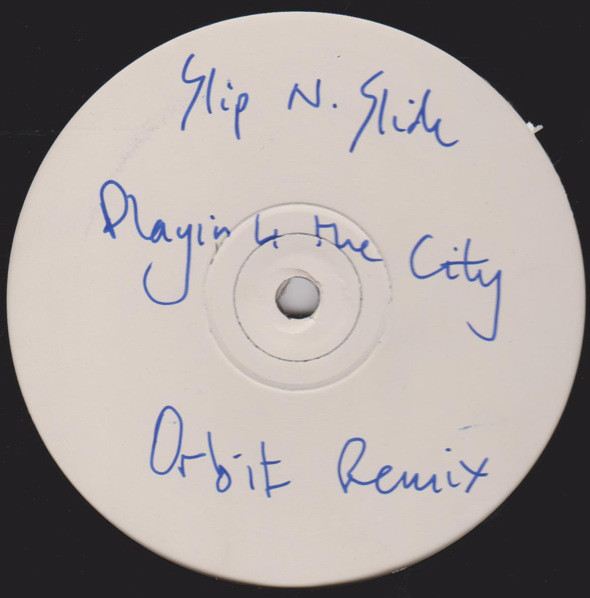 Slip N. Slide
Playin 4 the City
Orbit Remix